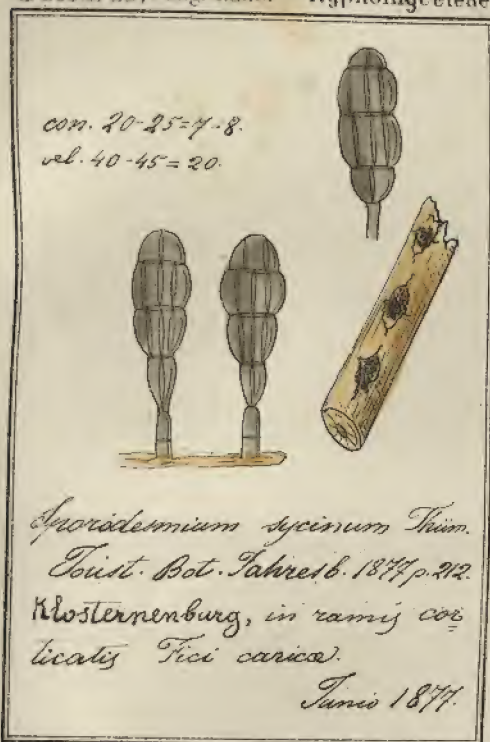 con. 20-25=7-8.
vel. 40-45=20.
Sporidesmium sycinum Thüm.
Bot. Jahresb. 1877 p. 212.
Klosternenburg, in ramis cor=
ticatis Fici caricæ.
Junio 1877.